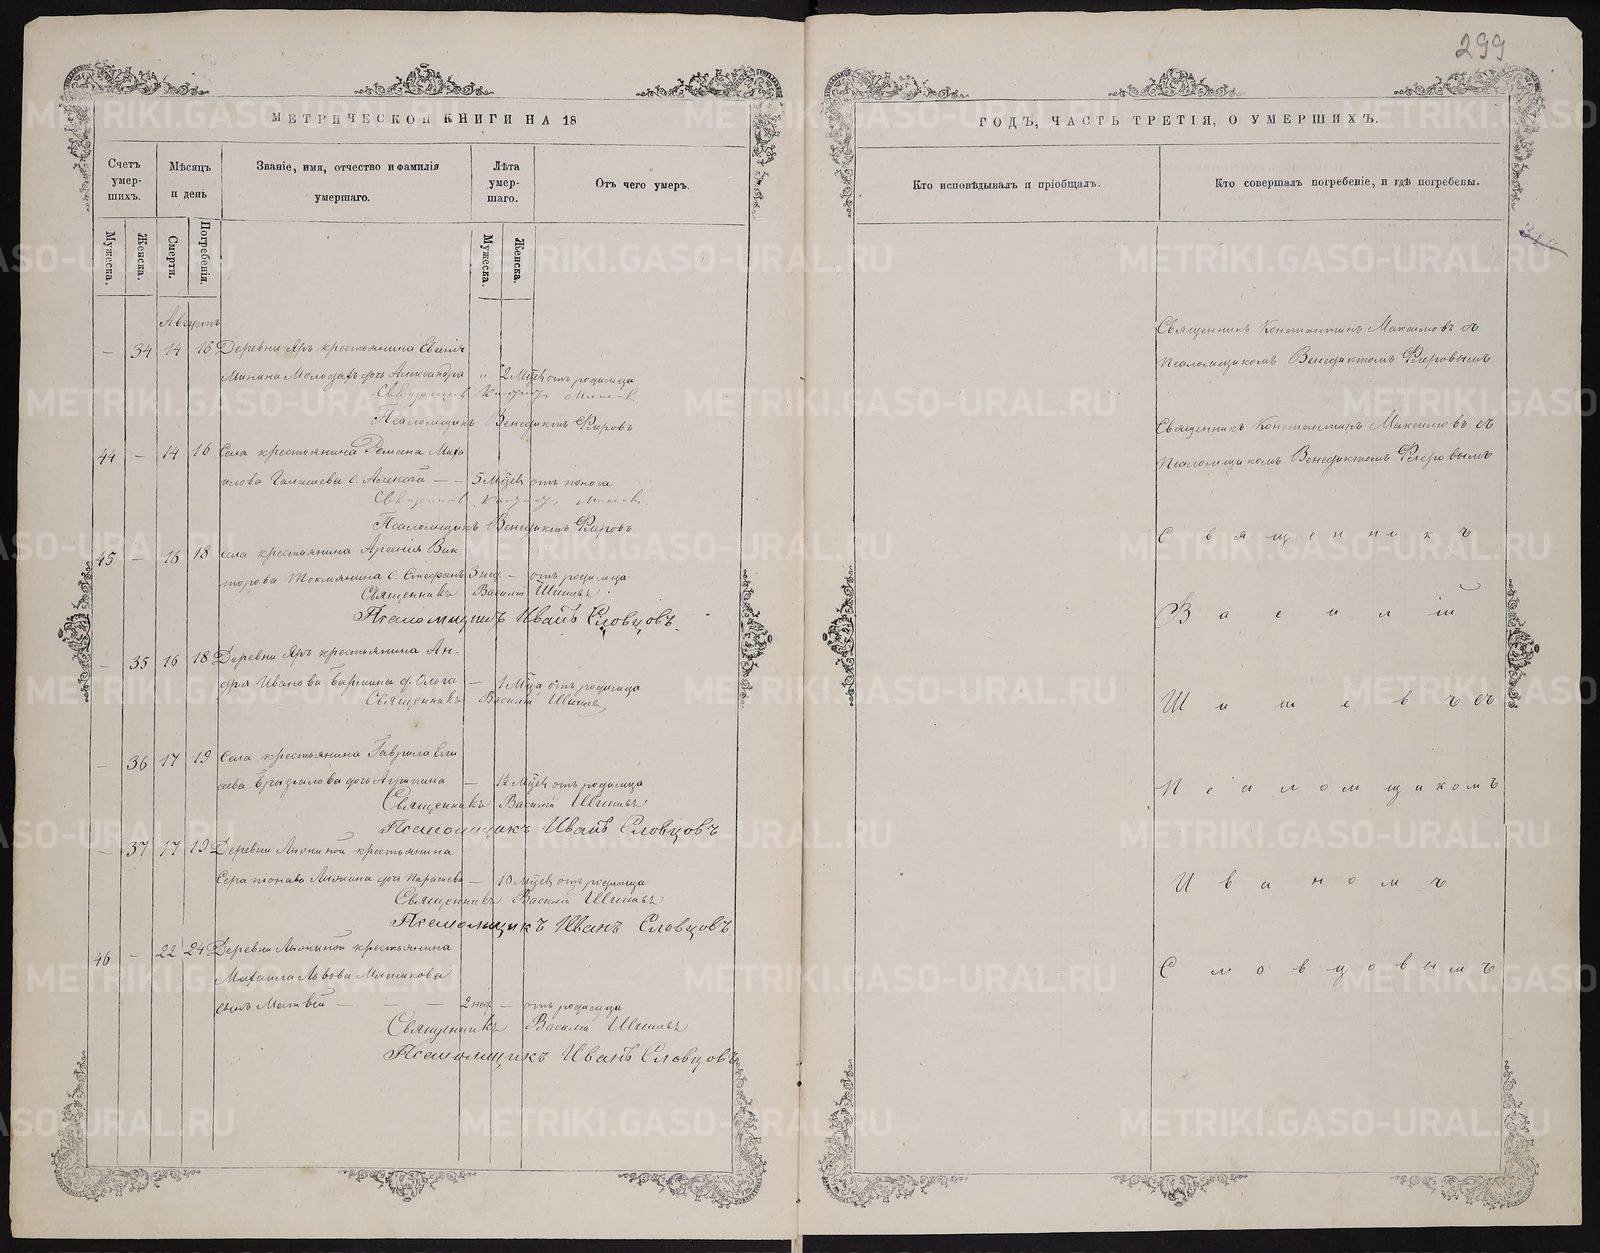 299
МЕТРИЧЕСКОЙ КНИГИ НА 18
Счетъ умер-
шихъ.
Мѣсяцъ
и день
Званіе, имя, отчество и фамилія
умершаго.
Лѣта
умер-
шаго.
Отъ чего умеръ.
Мужеска.
Женска.
Смерти.
Погребенія.
Мужеска.
Женска.
Августъ
— 34 14 16 Деревни Яръ крестьянина Евгенія
Минина Молодыхъ дочь Александра „ 2 Мѣсяц отъ родимца
Псаломщикъ Венедиктъ Флеровъ
44 — 14 16 Села крестьянина Романа Миха
илова с. Алексѣй — — 5 Мѣсяц отъ поноса
Псаломщикъ Венедиктъ Флеровъ
45 — 16 18 Села крестьянина Арсенія Вик
торова Токмянина с. Стефанъ 3 нед — отъ родимца
Священникъ Василій Шишевъ
Псаломщикъ Иванъ Словцовъ.
— 35 16 18 Деревни Яръ крестьянина Ан-
дрея Иванова д. Ольга — 1 Мѣца отъ родимца
Священникъ Василій Шишевъ
— 36 17 19 Села крестьянина Гаврила Ели
сеева дочь Агрипина — 1½ Мѣсяц отъ родимца
Священникъ Василій Шишевъ
Псаломщикъ Иванъ Словцовъ
— 37 17 19 Деревни Аникиной крестьянина
Серапіонава Аникина дочь Параскева — 10 Мѣсяц отъ родимца
Священникъ Василій Шишевъ
Псаломщикъ Иванъ Словцовъ
46 — 22 24 Деревни Аникиной крестьянина
Михаила Львова Мясникова
сынъ Матвѣй — — — 2 нед — отъ родимца
Священникъ Василій Шишевъ
Псаломщикъ Иванъ Словцовъ
ГОДЪ, ЧАСТЬ ТРЕТІЯ, О УМЕРШИХЪ.
Кто исповѣдывалъ и пріобщалъ.
Кто совершалъ погребеніе, и гдѣ погребены.
Священникъ Константинъ Максимовъ съ
Псаломщикомъ Венедиктомъ Флеровымъ
Священникъ Константинъ Максимовъ съ
Псаломщикомъ Венедиктомъ Флеровымъ
Священникъ
Василій
Шишевъ съ
Псаломщикомъ
Иваномъ
Словцовымъ
METRIKI.GASO-URAL.RU